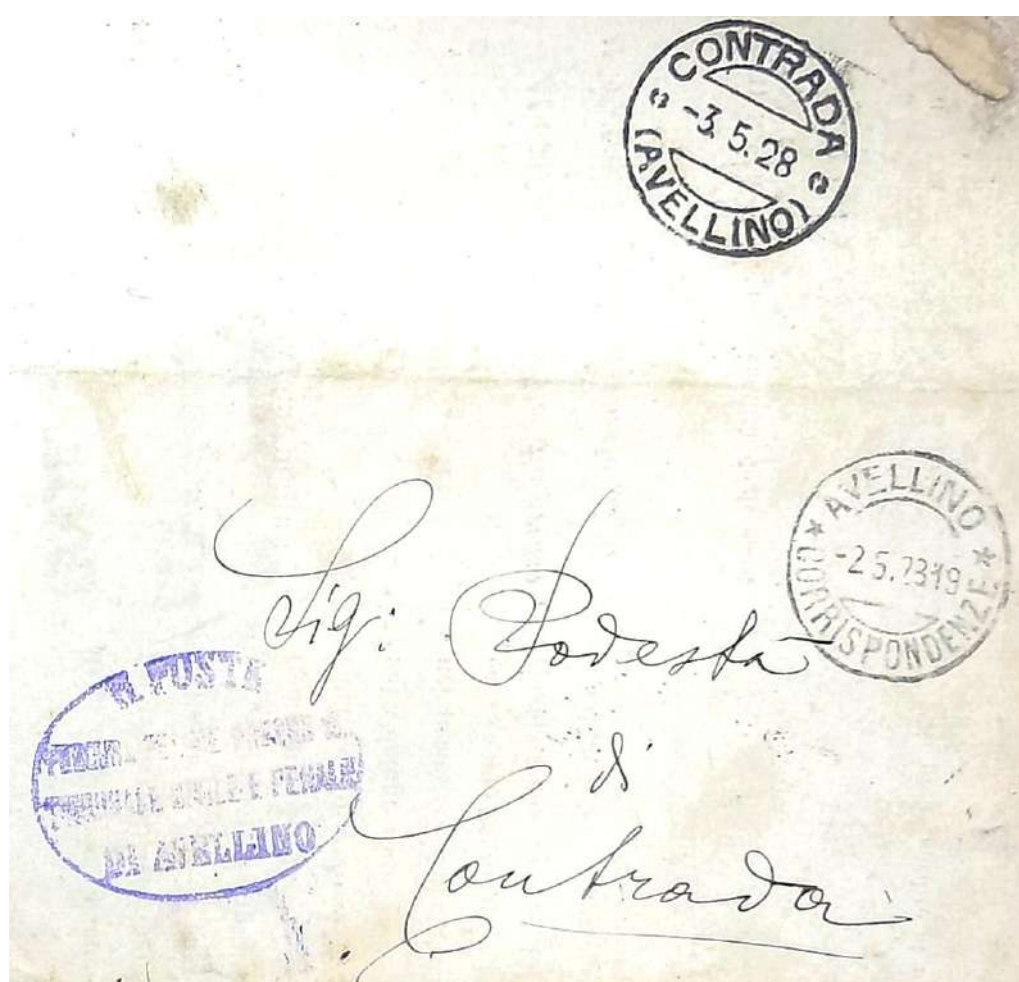 CONTRADA
-3.5.28
(AVELLINO)
AVELLINO
-2 5.2819
CORRISPONDENZE
Sig: Podestà
di
Contrada
R. POSTA
TRIBUNALE CIVILE E PENALE
DI AVELLINO